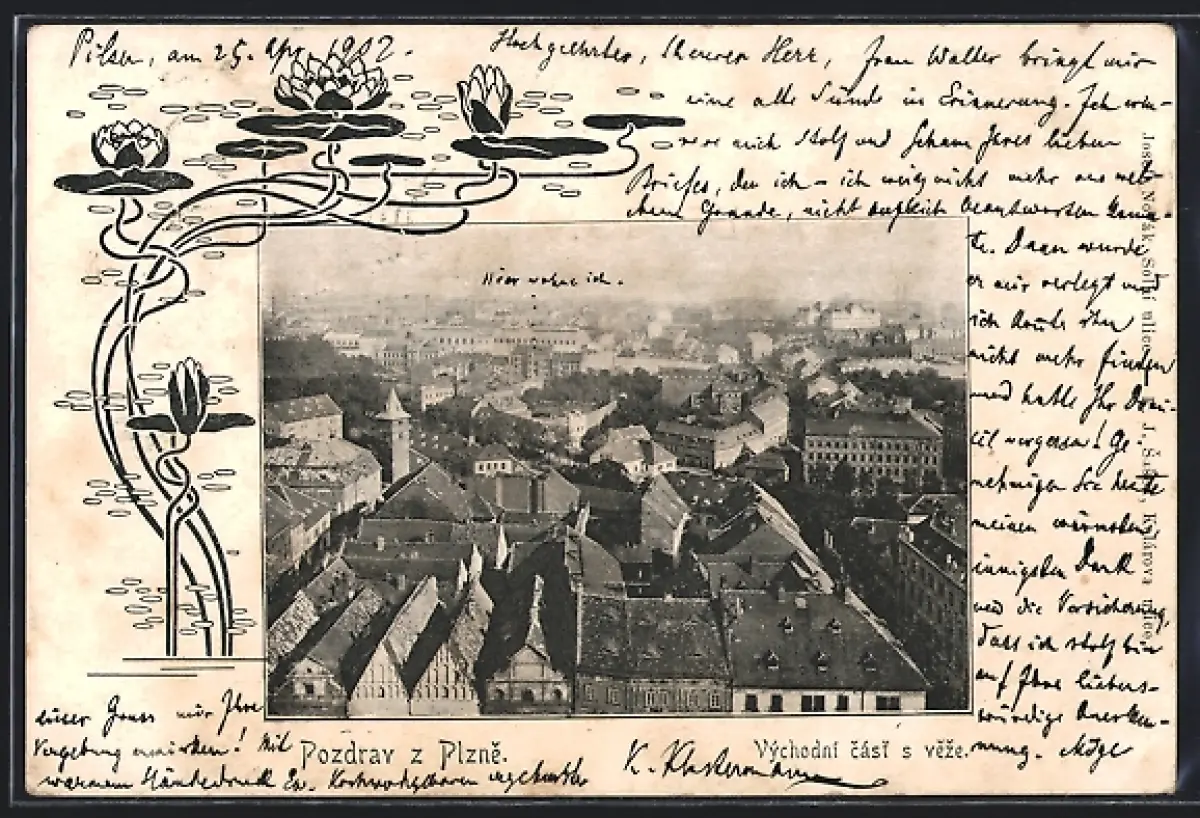 Pilsen, am 25. Apr. 1902.
Hochgeehrter, theurer Herr, Frau Walter bringt mir
eine alte Sünde in Erinnerung. Ich erin-
nere mich stolz und Ihres lieben
Briefes, den ich – ich weiß nicht mehr aus wel-
chem Grunde, nicht beantworten konn-
te. Dann wurde
er mir verlegt und
ich konnte ihn
nicht mehr finden
und hatte Ihr Domi-
cil vergessen! Ge
nehmigen Sie heute
meinen wärmsten,
innigsten Dank
und die Versicherung,
dass ich stolz bin
auf Ihre liebens-
würdige Anerken-
nung. Möge
dieser Gruss mir Ihre
Vergebung erwirken! Mit
warmem Händedruck Ew. Hochwohlgeboren
K. Klostermann
Hier wohne ich.
Pozdrav z Plzně.
Východní část s věže.